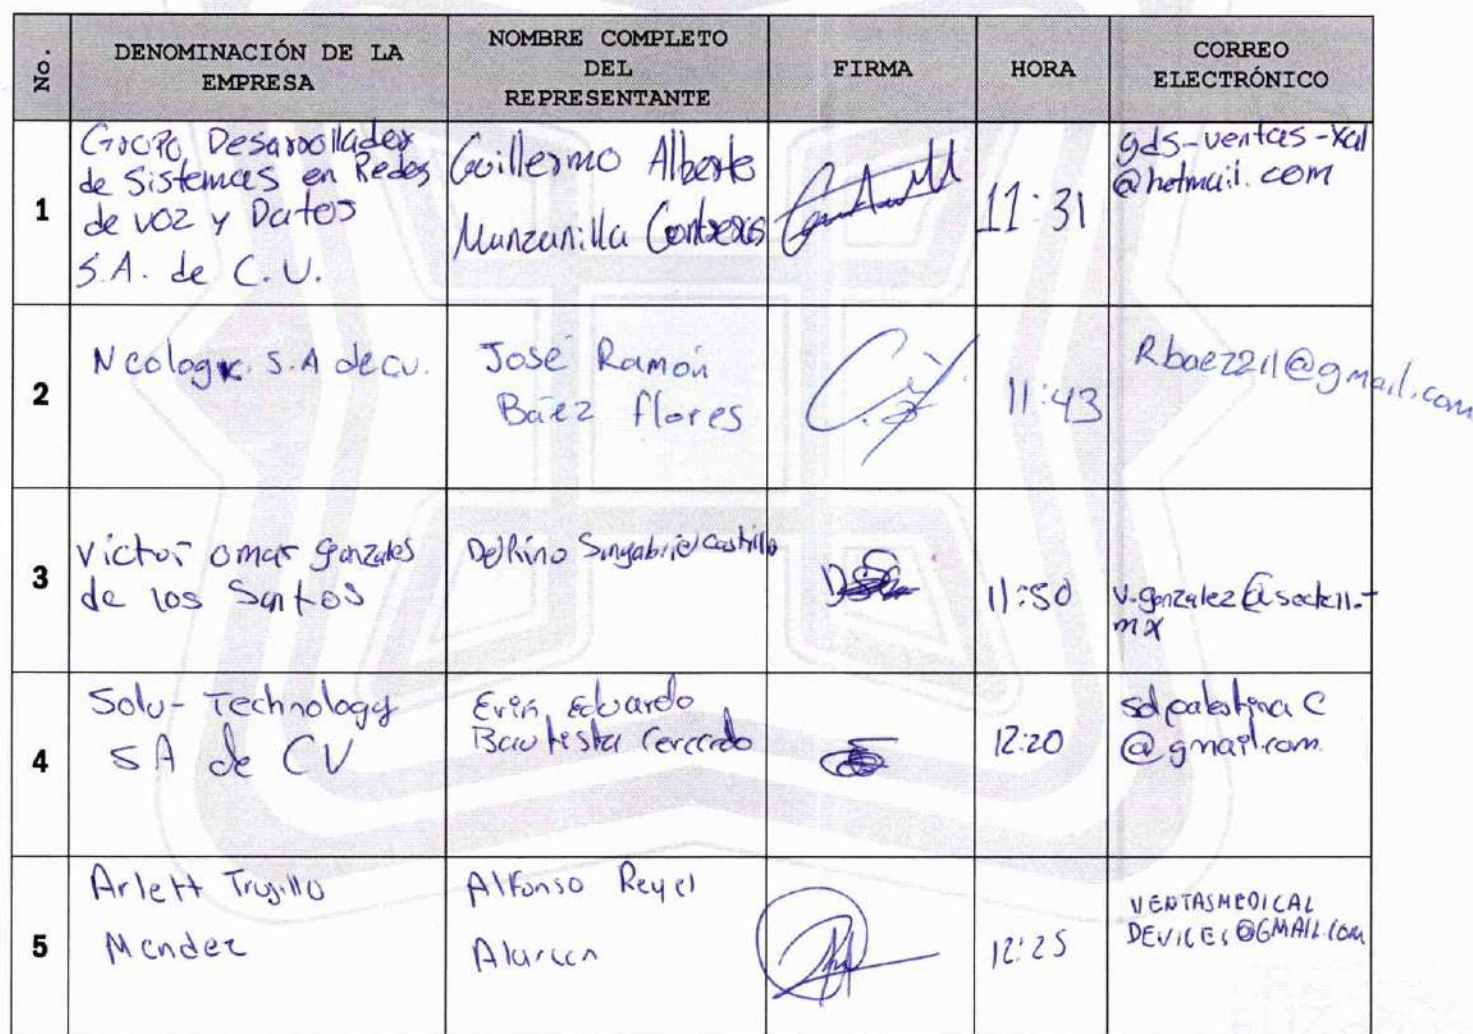 No.
DENOMINACIÓN DE LA
EMPRESA
NOMBRE COMPLETO
DEL
REPRESENTANTE
FIRMA
HORA
CORREO
ELECTRÓNICO
1
Grupo Desarrollador
de Sistemas en Redes
de voz y Datos
S.A. de C.V.
Guillermo Alberto
Manzanilla Contreras
11:31
gds-ventas-xal
@hotmail.com
2
Neologic S.A de cv.
José Ramón
Báez flores
11:43
Rbaez2211@gmail.com
3
Victor omar gonzales
de los Santos
Delfino Sangabriel Castillo
11:50
mx
4
Solu-Technology
SA de CV
Erin Eduardo
Bautista
12:20
@gmail.com
5
Arlett Trujillo
Mendez
Alfonso
Alarcon
12:25
VENTASMEDICAL
DEVICES@GMAIL.COM